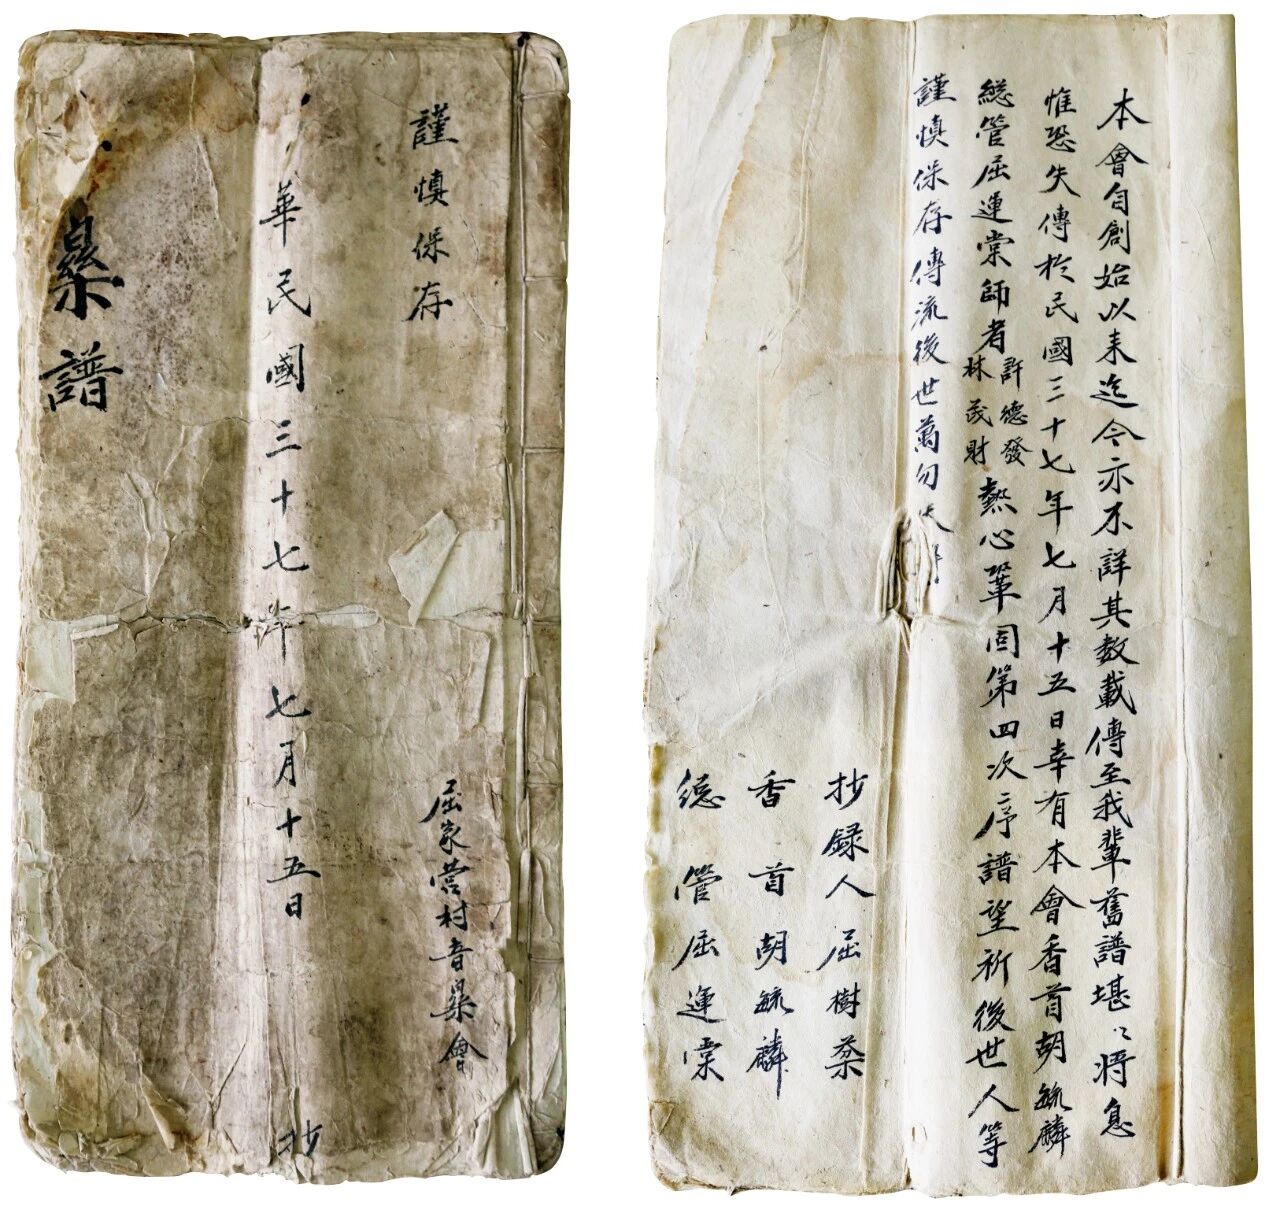 謹慎保存
華民國三十七年七月十五日
抄
樂譜
屈家营村音樂會
本會自創始以来迄今亦不詳其数載傳至我輩舊譜堪〻将息
惟恐失傳於民國三十七年七月十五日幸有本會香首胡毓麟
総管屈運棠師者許德發林茂財熱心鞏固第四次序譜望祈後世人等
謹慎保存傳流後世萬勿失
抄録人屈樹棻
香首胡毓麟
總管屈運棠